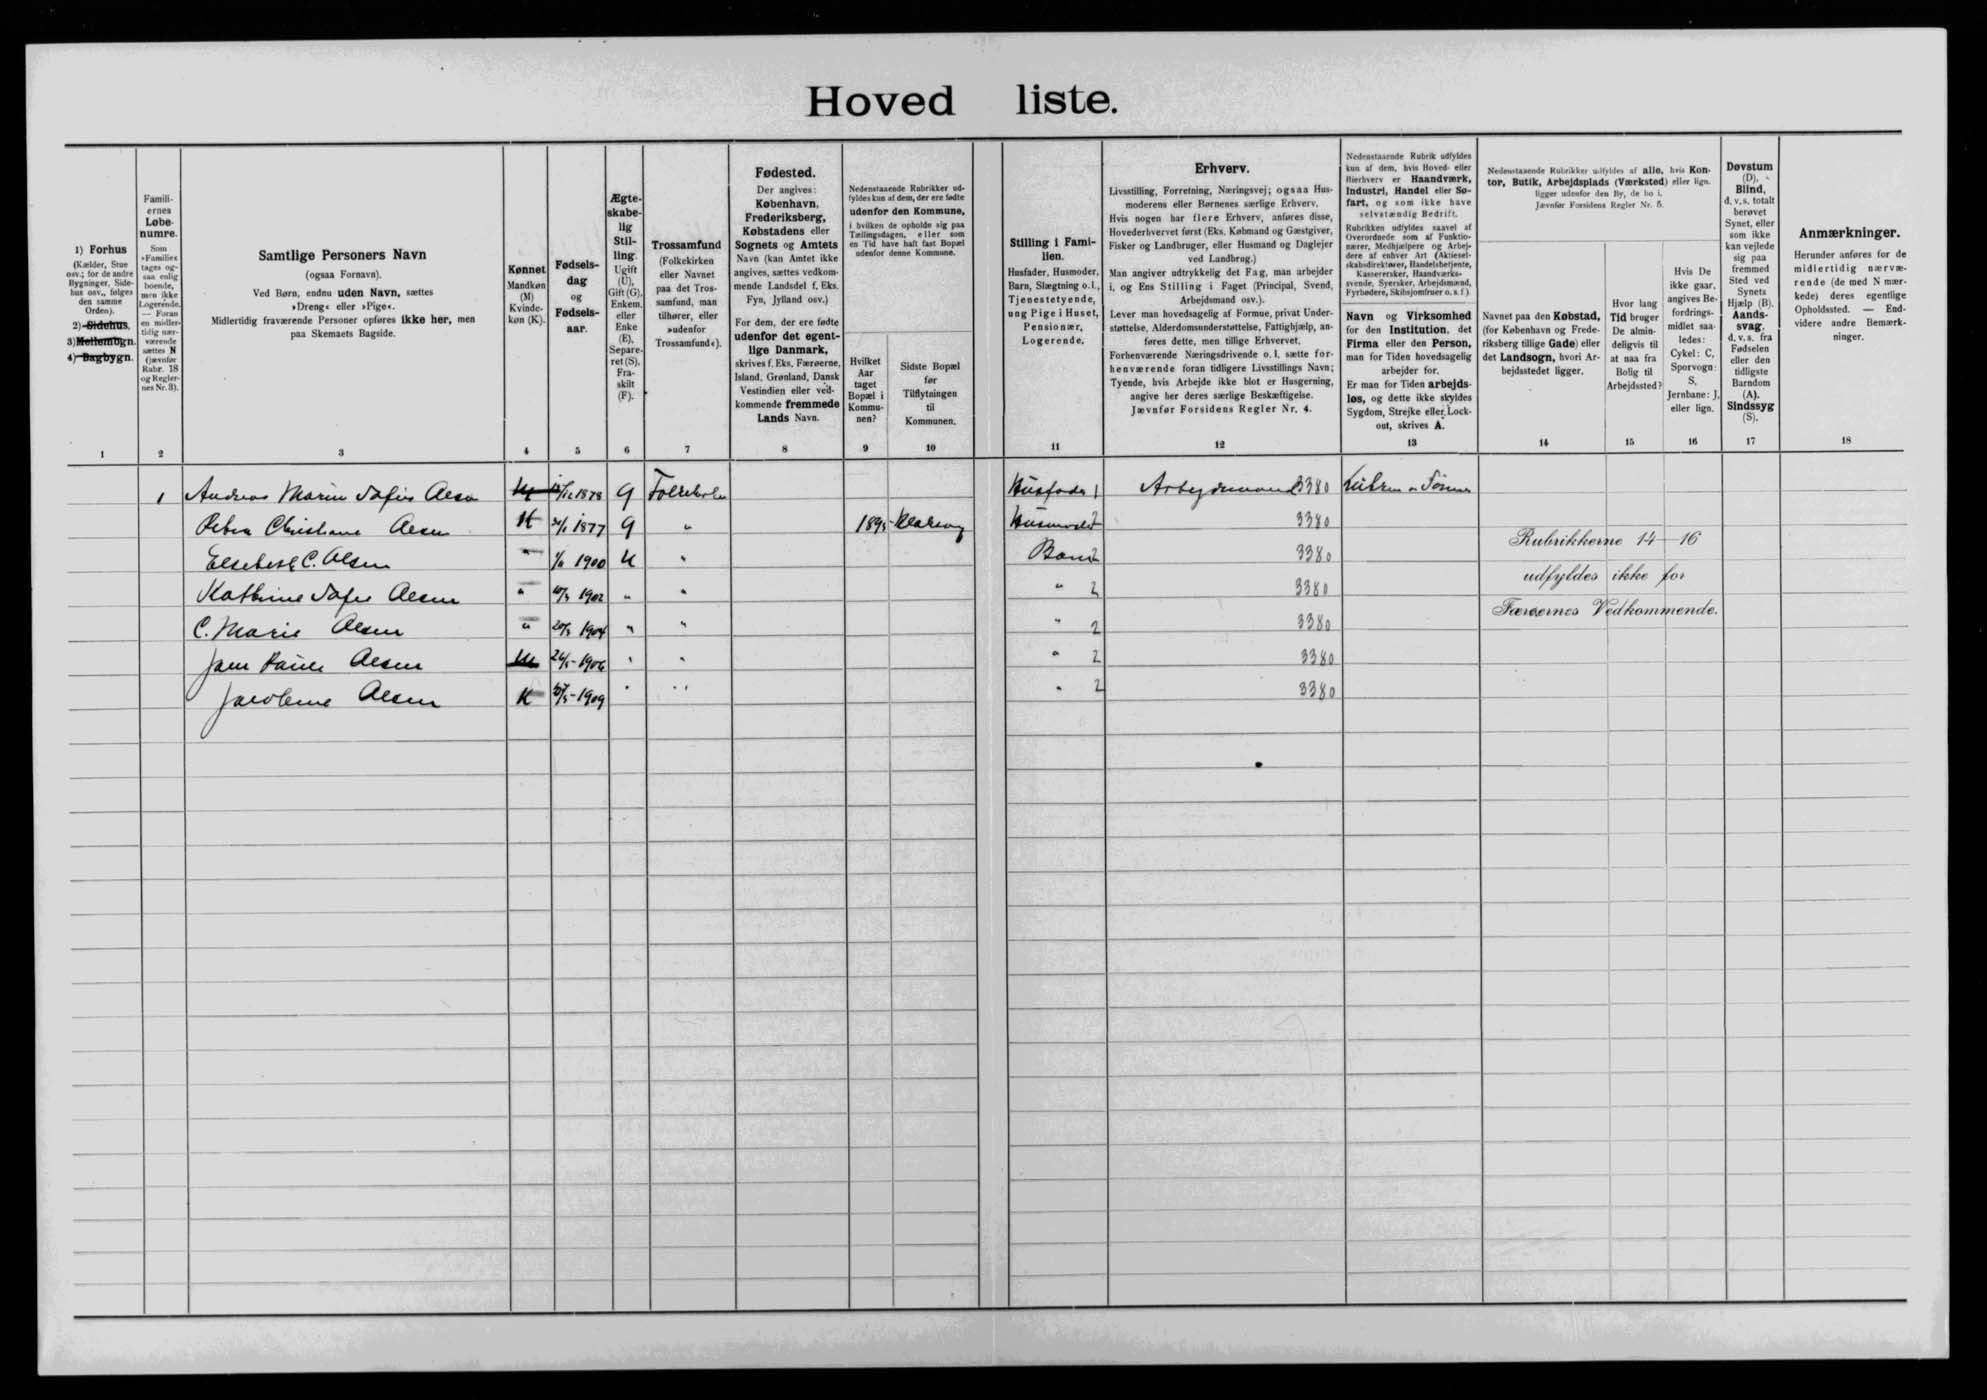 Hoved liste.
1) Forhus
(Kælder, Stue
osv.; for de andre
Bygninger, Side-
hus osv., følges
den samme
Orden).
2) Sidehus,
3) Mellembgn.
4) Bagbygn.
1
Famili-
ernes
Løbe-
numre.
Som
»Familie«
tages og-
saa enlig
boende,
men ikke
Logerende.
— Foran
en midler-
tidig nær-
værende
sættes N
(jævnfør
Rubr. 18
og Regler-
nes Nr. 3).
2
Samtlige Personers Navn
(ogsaa Fornavn).
Ved Børn, endnu uden Navn, sættes
»Dreng« eller »Pige«.
Midlertidig fraværende Personer opføres ikke her, men
paa Skemaets Bagside.
3
Kønnet
Mandkøn
(M)
Kvinde-
køn (K).
4
Fødsels-
dag
og
Fødsels-
aar.
5
Ægte-
skabe-
lig
Stil-
ling.
Ugift
(U),
Gift (G),
Enkem.
eller
Enke
(E),
Separe-
ret (S),
Fra-
skilt
(F).
6
Trossamfund
(Folkekirken
eller Navnet
paa det Tros-
samfund, man
tilhører, eller
»udenfor
Trossamfund«).
7
Fødested.
Der angives:
København,
Frederiksberg,
Købstadens eller
Sognets og Amtets
Navn (kan Amtet ikke
angives, sættes vedkom-
mende Landsdel f. Eks.
Fyn, Jylland osv.)
For dem, der ere fødte
udenfor det egent-
lige Danmark,
skrives f. Eks. Færøerne,
Island, Grønland, Dansk
Vestindien eller ved-
kommende fremmede
Lands Navn.
8
Nedenstaaende Rubrikker ud-
fyldes kun af dem, der ere fødte
udenfor den Kommune,
i hvilken de opholde sig paa
Tællingsdagen, eller som
en Tid have haft fast Bopæl
udenfor denne Kommune.
Hvilket
Aar
taget
Bopæl i
Kommu-
nen?
9
Sidste Bopæl
før
Tilflytningen
til
Kommunen.
10
Stilling i Fami-
lien.
Husfader, Husmoder,
Barn, Slægtning o. l.,
Tjenestetyende,
ung Pige i Huset,
Pensionær,
Logerende.
11
Erhverv.
Livsstilling, Forretning, Næringsvej; ogsaa Hus-
moderens eller Børnenes særlige Erhverv.
Hvis nogen har flere Erhverv, anføres disse,
Hovederhvervet først (Eks. Købmand og Gæstgiver,
Fisker og Landbruger, eller Husmand og Daglejer
ved Landbrug.)
Man angiver udtrykkelig det Fag, man arbejder
i, og Ens Stilling i Faget (Principal, Svend,
Arbejdsmand osv.).
Lever man hovedsagelig af Formue, privat Under-
støttelse, Alderdomsunderstøttelse, Fattighjælp, an-
føres dette, men tillige Erhvervet.
Forhenværende Næringsdrivende o. l. sætte for-
henværende foran tidligere Livsstillings Navn;
Tyende, hvis Arbejde ikke blot er Husgerning,
angive her deres særlige Beskæftigelse.
Jævnfør Forsidens Regler Nr. 4.
12
Nedenstaaende Rubrik udfyldes
kun af dem, hvis Hoved- eller
Bierhverv er Haandværk,
Industri, Handel eller Sø-
fart, og som ikke have
selvstændig Bedrift.
Rubrikken udfyldes saavel af
Overordnede som af Funktio-
nærer, Medhjælpere og Arbej-
dere af enhver Art (Aktiesel-
skabsdirektører, Handelsbetjente,
Kasserersker, Haandværks-
svende, Syersker, Arbejdsmænd,
Fyrbødere, Skibsjomfruer o. s. f.)
Navn og Virksomhed
for den Institution, det
Firma eller den Person,
man for Tiden hovedsagelig
arbejder for.
Er man for Tiden arbejds-
løs, og dette ikke skyldes
Sygdom, Strejke eller Lock-
out, skrives A.
13
Nedenstaaende Rubrikker udfyldes af alle, hvis Kon-
tor, Butik, Arbejdsplads (Værksted) eller lign.
ligger udenfor den By, de bo i.
Jævnfør Forsidens Regler Nr. 5.
Navnet paa den Købstad,
(for København og Frede-
riksberg tillige Gade) eller
det Landsogn, hvori Ar-
bejdsstedet ligger.
14
Hvor lang
Tid bruger
De almin-
deligvis til
at naa fra
Bolig til
Arbejdssted?
15
Hvis De
ikke gaar,
angives Be-
fordrings-
midlet saa-
ledes:
Cykel: C,
Sporvogn:
S,
Jernbane: J,
eller lign.
16
Døvstum
(D),
Blind,
d. v. s. totalt
berøvet
Synet, eller
som ikke
kan vejlede
sig paa
fremmed
Sted ved
Synets
Hjælp (B),
Aands-
svag,
d. v. s. fra
Fødselen
eller den
tidligste
Barndom
(A).
Sindssyg
(S).
17
Anmærkninger.
Herunder anføres for de
midlertidig nærvæ-
rende (de med N mær-
kede) deres egentlige
Opholdssted. — End-
videre andre Bemærk-
ninger.
18
1 Andreas 1878 G Husfader 1 Arbejdsmand 3380
Christiane Olsen K 1877 G " 1895 Husmoder 2 3380
Elsebeth C. Olsen " 1900 U " Barn 2 3380
Kathrine Sofie Olsen " 1902 " " " 2 3380
C. Marie Olsen " 1904 " " " 2 3380
Olsen M 1906 " " " 2 3380
Olsen K 1909 " " " 2 3380
Rubrikkerne 14-16
udfyldes ikke for
Færøernes Vedkommende.